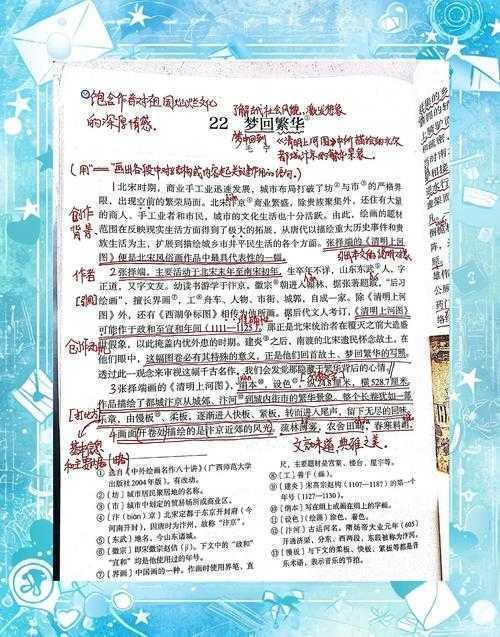 饱含作者对祖国灿烂文化
的深厚情感.
了解古代社会风貌,激发想象
22 梦回繁华
梦中回到
《清明上河图》中所描绘的北宋
都城汴京的繁华景象.
1北宋时期,商业手工业迅速发展,城市布局打破了坊与市的严格界
限,出现空前的繁荣局面。北宋汴京商业繁盛,除贵族聚集外,还住有大量
的商人、手工业者和市民,城市的文化生活也十分活跃。由此,绘画的题材
范围在反映现实生活方面得到了极大的拓展,从唐代以描绘重大历史事件和贵
族生活为主,扩展到描绘城乡市井平民生活的各个方面。张择端的《清明上河
图》便是北宋风俗画作品中最具代表性的一幅。
创作
背景
2张择端,主要活动于北宋末年至南宋初年,生卒年不详,山东东武人,字
正道,又字文友。幼读书游学于汴京,徽宗朝进入翰林。据张著题跋,“后习
绘画”,擅长界画,工舟车、人物、市街、城郭,自成一家。除《清明上河
图》外,还有《西湖争标图》相传为他所画。据后代文人考订,《清明上河图》
可能作于政和至宣和年间(1111—1125),那正是北宋统治者在覆灭之前大造盛
世假象,以此掩盖内忧外患的时期。建炎之后,南渡的北宋遗民怀念故土。在
他们眼中,这幅图卷必有其特殊的意义,正是他们回首故土、梦回繁华的写照。
透过此一观念来审视这幅千古名作,我们会发觉那隐藏于繁华背后的心情。
作者
创作动机
3张择端的《清明上河图》,绢本,设色,纵24.8厘米,横528.7厘米。
作品描绘了都城汴京从城郊、汴河到城内街市的繁华景象。整个长卷犹如一部
乐章,由慢板、柔板,逐渐进入快板、紧板,转而进入尾声,留下无尽的回味。
4画面开卷处描绘的是汴京近郊的风光。疏林薄雾,农舍田畴,春寒料峭,
文言味道,典雅之美
① 选自《中外绘画名作八十讲》(广西师范大学
出版社2004年版)。有改动。
②〔坊〕城市居民聚居地的名称。
③〔市〕城市中划定的贸易场所或商业区。
④〔汴(biàn)京〕北宋定都于东京开封府(今
河南开封),因唐时为汴州,故称“汴京”。
⑤〔东武〕地名,今山东诸城。
⑥〔徽宗〕即宋徽宗赵佶(jí)。下文中的“政和”
“宣和”均是他使用过的年号。
⑦〔界画〕中国画的一种。作画时使用界笔、直
尺,主要题材是宫室、楼台、屋宇等。
⑧〔工〕善于(画)。
⑨〔建炎〕宋高宗赵构(1107—1187)的第一个
年号(1127—1130)。
⑩〔绢本〕写在绢上或画在绢上的字画。
⑪〔设色〕〔绘画〕涂色,着色。
⑫〔汴河〕古运河名。隋炀帝大业元年(605)
开通济渠,分东、西两段,东段被称为汴河。
⑬〔慢板〕与下文的柔板、快板、紧板等都是音
乐术语,表示音乐的节拍。